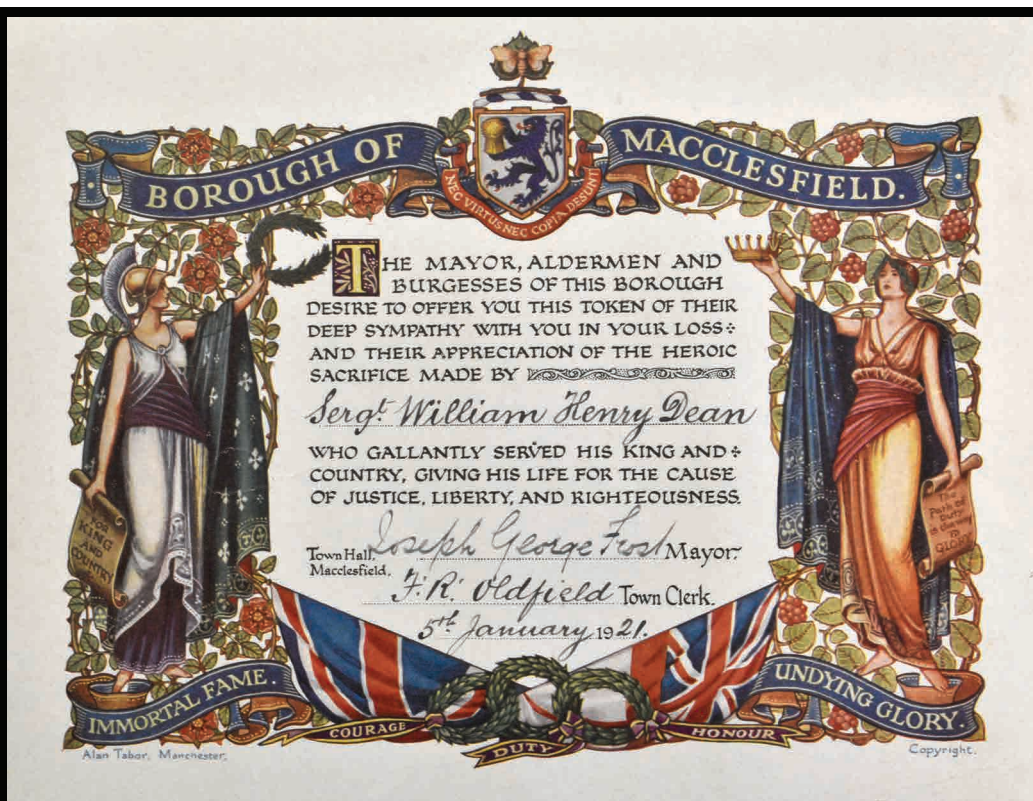 BOROUGH OF MACCLESFIELD.
NEC VIRTUS NEC COPIA DESUNT
THE MAYOR, ALDERMEN AND
BURGESSES OF THIS BOROUGH
DESIRE TO OFFER YOU THIS TOKEN OF THEIR
DEEP SYMPATHY WITH YOU IN YOUR LOSS
AND THEIR APPRECIATION OF THE HEROIC
SACRIFICE MADE BY
Sergt. William Henry Dean
WHO GALLANTLY SERVED HIS KING AND
COUNTRY, GIVING HIS LIFE FOR THE CAUSE
OF JUSTICE, LIBERTY, AND RIGHTEOUSNESS.
Town Hall, Joseph George Frost Mayor.
Macclesfield.
F. R. Oldfield Town Clerk.
5th January 1921.
FOR
KING
AND
COUNTRY
The
Path of
Duty
is the way
to
GLORY
IMMORTAL FAME.
UNDYING GLORY.
COURAGE
DUTY
HONOUR
Alan Tabor, Manchester.
Copyright.